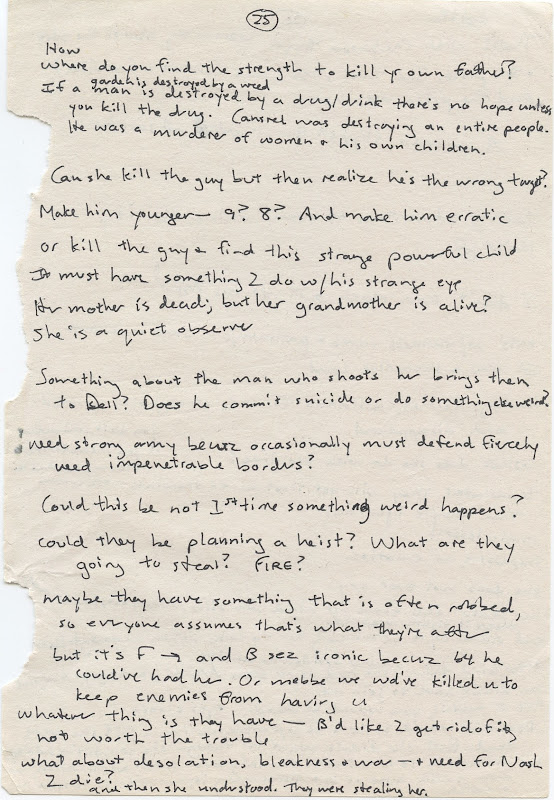 25
How
where do you find the strength to kill yr own father?
garden is destroyed by a weed
If a man is destroyed by a drug/drink there's no hope unless
you kill the drug. Cansrel was destroying an entire people.
He was a murderer of women + his own children.
Can she kill the guy but then realize he's the wrong target?
Make him younger— 9? 8? And make him erratic
or kill the guy + find this strange powerful child
It must have something 2 do w/his strange eye
Her mother is dead; but her grandmother is alive?
She is a quiet observer
Something about the man who shoots her brings them
to Dell? Does he commit suicide or do something else weird?
need strong army becuz occasionally must defend fiercely
need impenetrable borders?
Could this be not 1st time something weird happens?
could they be planning a heist? What are they
going to steal? FIRE?
maybe they have something that is often robbed,
so everyone assumes that's what they're after
but it's F → and B sez ironic becuz b4 he
could've had her. Or mebbe we wd've killed u to
keep enemies from having u
whatever thing is they have — B'd like 2 get rid of it,
not worth the trouble
what about desolation, bleakness + war — + need for Nash
2 die?
and then she understood. They were stealing her.